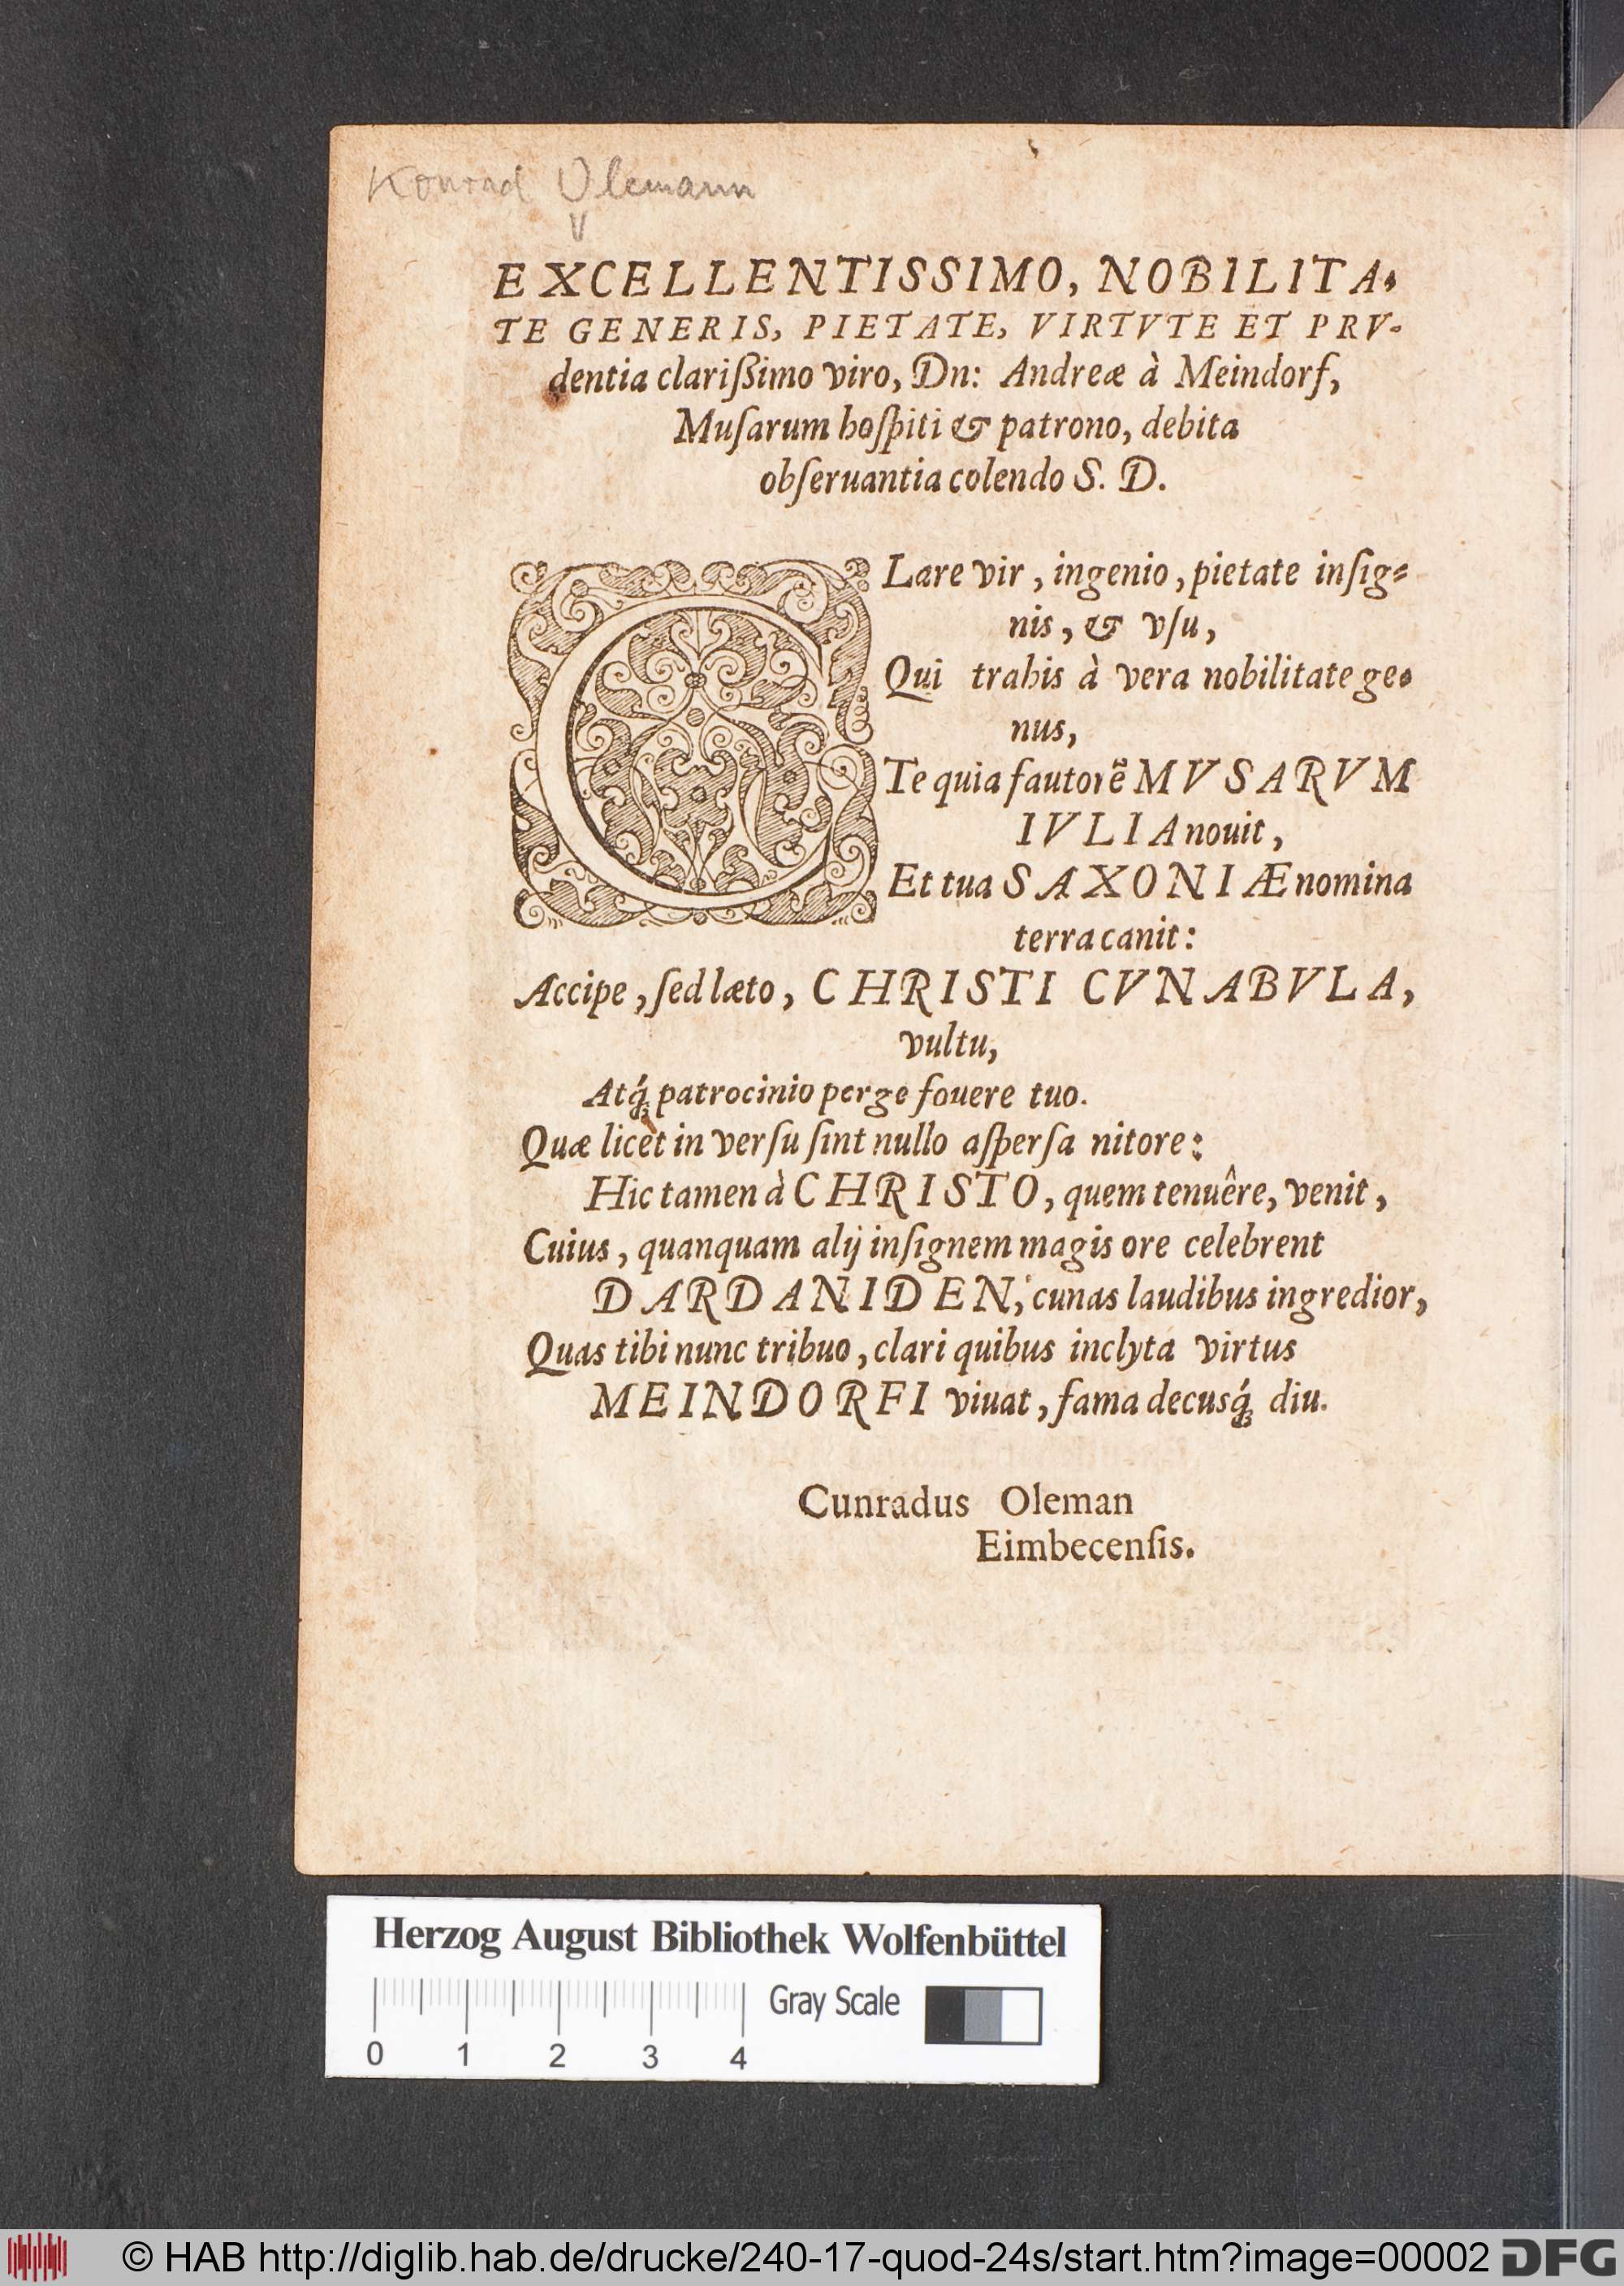 Konrad Olemann
EXCELLENTISSIMO, NOBILITA-
TE GENERIS, PIETATE, VIRTVTE ET PRV-
dentia clarißimo viro, Dn: Andreæ à Meindorf,
Muſarum hoſpiti & patrono, debita
obſeruantia colendo S. D.
CLare vir, ingenio, pietate inſig-
nis, & vſu,
Qui trahis à vera nobilitate ge-
nus,
Te quia fautorẽ MVSARVM
IVLIA nouit,
Et tua SAXONIÆ nomina
terra canit:
Accipe, ſed læto, CHRISTI CVNABVLA,
vultu,
Atq́ꝫ patrocinio perge fouere tuo.
Quæ licèt in verſu ſint nullo aſperſa nitore:
Hic tamen à CHRISTO, quem tenuêre, venit,
Cuius, quanquam alij inſignem magis ore celebrent
DARDANIDEN, cunas laudibus ingredior,
Quas tibi nunc tribuo, clari quibus inclyta virtus
MEINDORFI viuat, fama decusq́ꝫ diu.
Cunradus Oleman
Eimbecenſis.
Herzog August Bibliothek Wolfenbüttel
Gray Scale
0 1 2 3 4
© HAB http://diglib.hab.de/drucke/240-17-quod-24s/start.htm?image=00002 DFG